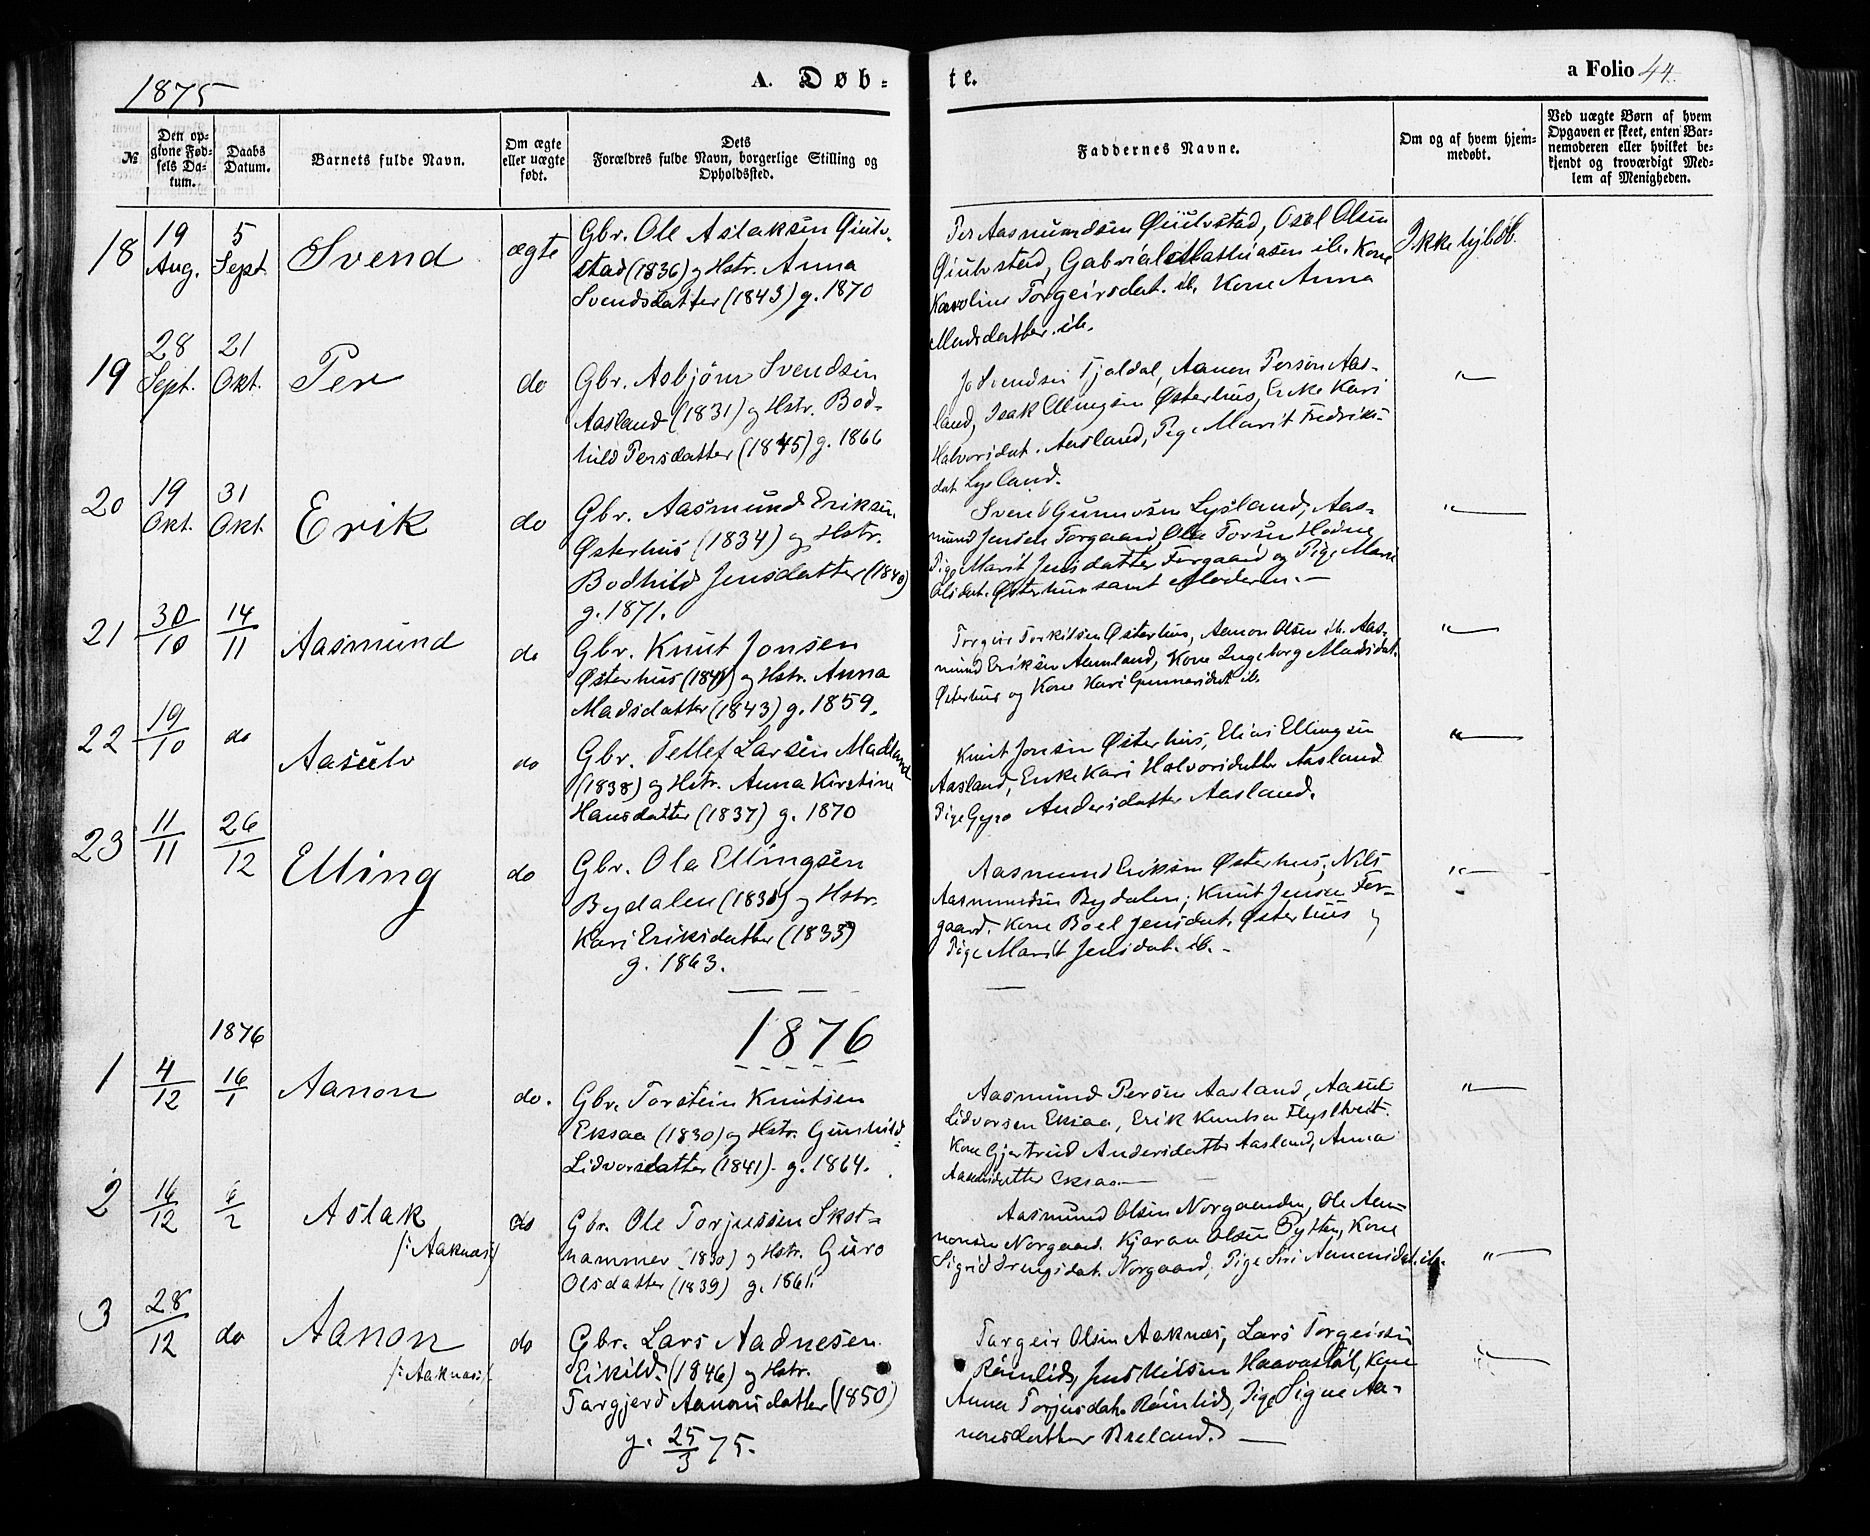 1875
A. Døb-
te.
a Folio 44.
№
Den op-
givne Fød-
sels Da-
tum.
Daabs
Datum.
Barnets fulde Navn.
Om ægte
eller uægte
født.
Dets
Forældres fulde Navn, borgerlige Stilling og
Opholdssted.
Faddernes Navne.
Om og af hvem hjem-
medøbt.
Ved uægte Børn af hvem
Opgaven er skeet, enten Bar-
nemoderen eller hvilket be-
kjendt og troværdigt Med-
lem af Menigheden.
18
19
Aug.
5
Sept.
Svend
ægte
Gbr. Ole Aslaksen Øiulv-
stad (1836) og Hstr. Anna
Svendsdatter (1843) g. 1870
Per Aasmundsen Øiulvstad, Osol Olsen
Øiulvstad, Gabriel Mathiasen ib. Kone
Karoline Torgeirsdat. ib. Kone Anna
Madsdatter ib.
Ikke hjdøb.
19
28
Sept.
21
Okt.
Per
do
Gbr. Asbjörn Svendsen
Aasland (1831) og Hstr. Bod-
hild Persdatter (1845) g. 1866
Jo Svendsen Tjaldal, Aanen Person Aas-
land, Isak Ellingsen Østerhus, Enke Kari
Halvorsdat. Aasland, Pige Marit Fredriks-
dat. Lysland.
"
20
19
Okt.
31
Okt
Erik
do
Gbr. Aasmund Eriksen
Østerhus (1834) og Hstr.
Bodhild Jensdatter (1840)
g. 1871.
Svend Gunnarsen Lysland, Aas-
mund Jensen Forgaard, Ole Torsen Hodne
Pige Marit Jensdatter Forgaard og Pige Maren
Olsdat. Østerhus samt Moderen.
"
21
30/10
14/11
Aasmund
do
Gbr. Knut Jonsen
Østerhus (1841) og Hstr. Anna
Madsdatter (1843) g. 1859.
Torgeir Torkilsen Østerhus, Aanon Olsen ib. Aas-
mund Eriksen Aamland, Kone Ingeborg Madsdat.
Østerhus og Kone Kari Gunnarsdat ib.
"
22
19/10
do
Aasulv
do
Gbr. Tellef Larsen Madland
(1838) og Hstr. Anna Kirstine
Hansdatter (1837) g. 1870
Knut Jonsen Østerhus, Elias Ellingsen
Aasland, Enke Kari Halvorsdatter Aasland
Pige Gyro Andersdatter Aasland.
"
23
11/11
26/12
Elling
do
Gbr. Ola Ellingsen
Bydalen (1830) og Hstr.
Kari Eriksdatter (1833)
g. 1863.
Aasmund Eriksen Østerhus, Nils
Aasmundsen Bydalen, Knut Jensen For-
gaard. Kone Boel Jensdat. Østerhus
Pige Marit Jensdat. ib.
"
1876
1876
1
4/12
16/1
Aanon
do.
Gbr. Torstein Knutsen
Eksaa (1830) og Hstr. Gunhild
Lidvorsdatter (1841) g. 1864.
Aasmund Persen Aasland, Aasul
Lidvorsen Eksaa, Erik Knutsen Flystveit.
Kone Gjertrud Andersdatter Aasland, Anna
Aanensdatter Eksaa
"
2
16/12
6/2
Aslak
/: Aaknas :/
do
Gbr. Ole Torjussen Skot-
hammer (1830) og Hstr. Guro
Olsdatter (1839) g. 1861.
Aasmund Olsen Norgaarden, Ole Aan-
nonsen Norgaard. Kjøran Olsen Pytten, Kone
Sigrid Drengsdat. Norgaard, Pige Siri Aanonsdat. ib.
"
3
28/12
do
Aanon
/: Aaknas :/
do
Gbr. Lars Aadnesen
Eikild (1846) og Hstr.
Targjerd Aanonsdatter (1850)
g. 25/3 75.
Targeir Olsen Aaknas, Lars Torgeirsen
Rönlid, Jens Nilsen Haavastøl, Kone
Anna Torjusdat. Rönlid, Pige Signe Aa-
nonsdatter Øseland.
"